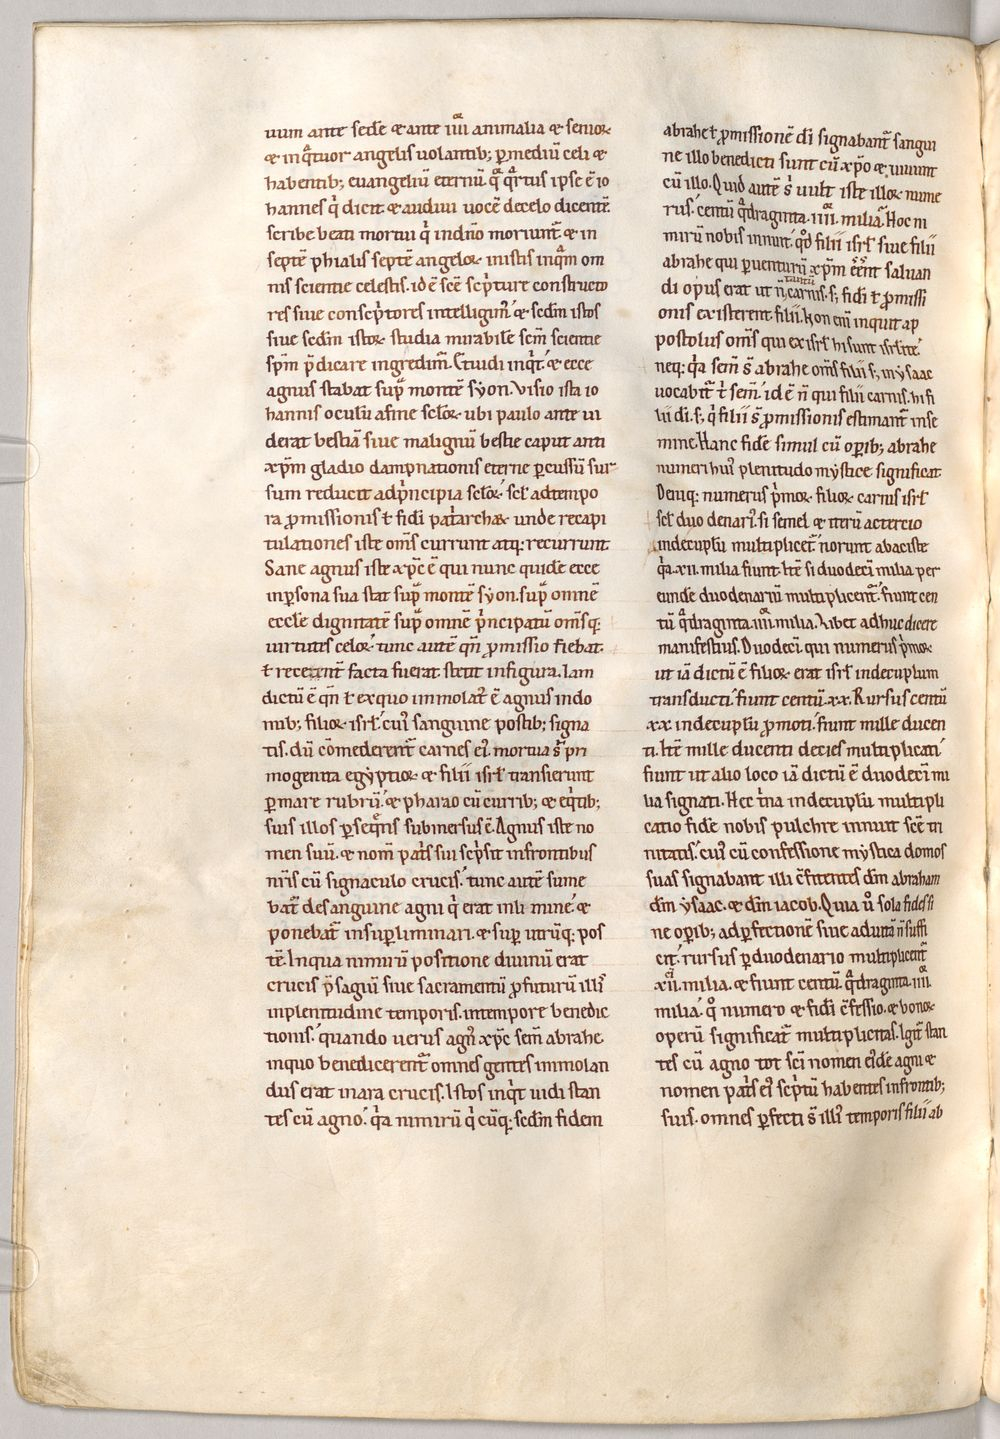 uum ante sedē & ante iiiior animalia & senioꝝ
& in qͣtuor angelis uolantibꝫ ꝑ mediū celi &
habentibꝫ euangeliū eternū. qͣ qͣrtus ipse ē io
hannes qͥ dicit & audiui uocē de celo dicentē.
scribe beati mortui qͥ in dn̄o moriunt̄ & in
septē phialis septē angeloꝝ inistis inqͣm om
nis scientie celestis. id ē scē scͥpture constructo
res siue conscͥptores intelligunt̄. & scd̄m istos
siue scd̄m istoꝝ studia mirabilē scm̄ scientie
spm̄ p̄dicare ingredim̄. Et uidi inqͥt. & ecce
agnus stabat supͣ montē syon. Visio ista io
hannis oculū a fine sclōꝝ ubi paulo ante ui
derat bestiā siue malignū bestie caput anti
xp̄m gladio dampnationis eterne ꝑcussū sur
sum reducit ad pͥncipia sclōꝝ. scł ad tempo
ra ꝓmissionis ł fidi patͥarchaꝝ unde recapi
tulationes iste om̄s currunt atqꝫ recurrunt.
Sane agnus iste xp̄c ē qui nunc quidē ecce
in ꝑsona sua stat supͣ montē syon. supͣ omnē
ecclē dignitatē supͣ omnē pͥncipatū om̄sqꝫ
uirtutes celoꝝ. tunc autē qn̄ ꝓmissio fiebat.
ł recent̄ facta fuerat. stetit in figura. Iam
dictū ē qn̄ ł ex quo immolatͣ ē agnus in do
mibꝫ filioꝝ isrł. cuiꝰ sanguine postibꝫ signa
tis. dū cōmederent̄ carnes eiꝰ. mortua sͣ pri
mogenita egyptioꝝ & filii isrł transierunt
ꝑ mare rubrū. & pharao cū curribꝫ & eqͥtibꝫ
suis illos ꝑseqn̄s submersus ē. Agnus iste no
men suū. & nom̄ patͥs sui scͥpsit in frontibus
nr̄is cū signaculo crucis. tunc autē sume
batͣ de sanguine agni qͥ erat in limine. &
ponebatͣ in suꝑliminari. & suꝑ utrūqꝫ pos
tē. In qua nimirū positione diuinū erat
crucis p̄sagiū siue sacramentū ꝓfuturū illiꝰ
in plenitudine temporis. in tempore benedic
tionis. quando uerus agnꝰ xp̄c sem̄ abrahe.
in quo benedicerentͣ omnes gentes immolan
dus erat in ara crucis. Istos inqͥt uidi stan
tes cū agno. qͥa nimirū qͥcūqꝫ scd̄m fidem
abrahe ł ꝓmissionē di signabantͣ sangui
ne illo benedicti sunt cū xp̄o & uiuunt
cū illo. Quid autē sͥ uult iste illoꝝ nume
rus. centū qͣdraginta. iiiior. milia. Hoc ni
mirū nobis innuit. qd̄ filii isrł siue filii
abrahe qui ꝑuenturū xp̄m eēnt saluan
di opus erat ut n̄ tantū carnis. sꝫ fidi ł ꝓmissi
onis existerent filii. Non eni inquit ap
postolus om̄s qui ex isrł hi sunt isrłite.
neqꝫ qͥa sem̄ sͣ abrahe om̄s filii sꝫ in ysaac
uocabitͣ tͥ sem̄. id ē n̄ qui filii carnis. hi fi
lii di. sꝫ qͥ filii sͣ ꝓmissionis estimantͣ in se
mine. Hanc fidē simul cū oꝑibꝫ abrahe
numeri huiꝰ plenitudo mystice significat.
Deniqꝫ numerus pͥmoꝝ filioꝝ carnis isrł
scł duodenariꝰ. si semel & iterū ac tercio
in decuplū multiplicetͣ. norunt abaciste
qͥa .xii. milia fiunt. Itē si duodeci milia per
eundē duodenariū multiplicentͣ. fiunt cen
tū qͣdraginta. iiiior. milia. Libet adhuc dicere
manifestius. Duodeci qui numerus pͥmoꝝ
ut iā dictū ē filioꝝ erat isrł in decuplum
transducti. fiunt centū .xx. Rursus centū
.xx. in decuplū ꝓmoti. fiunt mille ducen
ti. Itē mille ducenti decies multiplicati.
fiunt ut alio loco iā dictū ē duodeci mi
lia signati. Hec tͥna in decuplū multipli
catio fidē nobis pulchre innuit scē tri
nitatis. cuiꝰ cū confessione mystica domos
suas signabant illi cōfitentes dm̄ abraham
dm̄ ysaac. & dm̄ iacob. Quia uͦ sola fides si
ne oꝑibꝫ ad ꝑfectionē siue ad uitā n̄ suffi
cit. rursus ꝑ duodenario multiplicentͣ
xii. milia. & fiunt centū qͣdraginta iiiior.
milia. qͦ numero & fidi cōfessio. & bonoꝝ
operū significatͣ multiplicitas. Igitͣ stan
tes cū agno tot sci nomen eiꝰdē agni &
nomen patͥs eiꝰ scͥptū habentes in frontibꝫ
suis. omnes ꝑfecti sͣ illiꝰ temporis filii ab